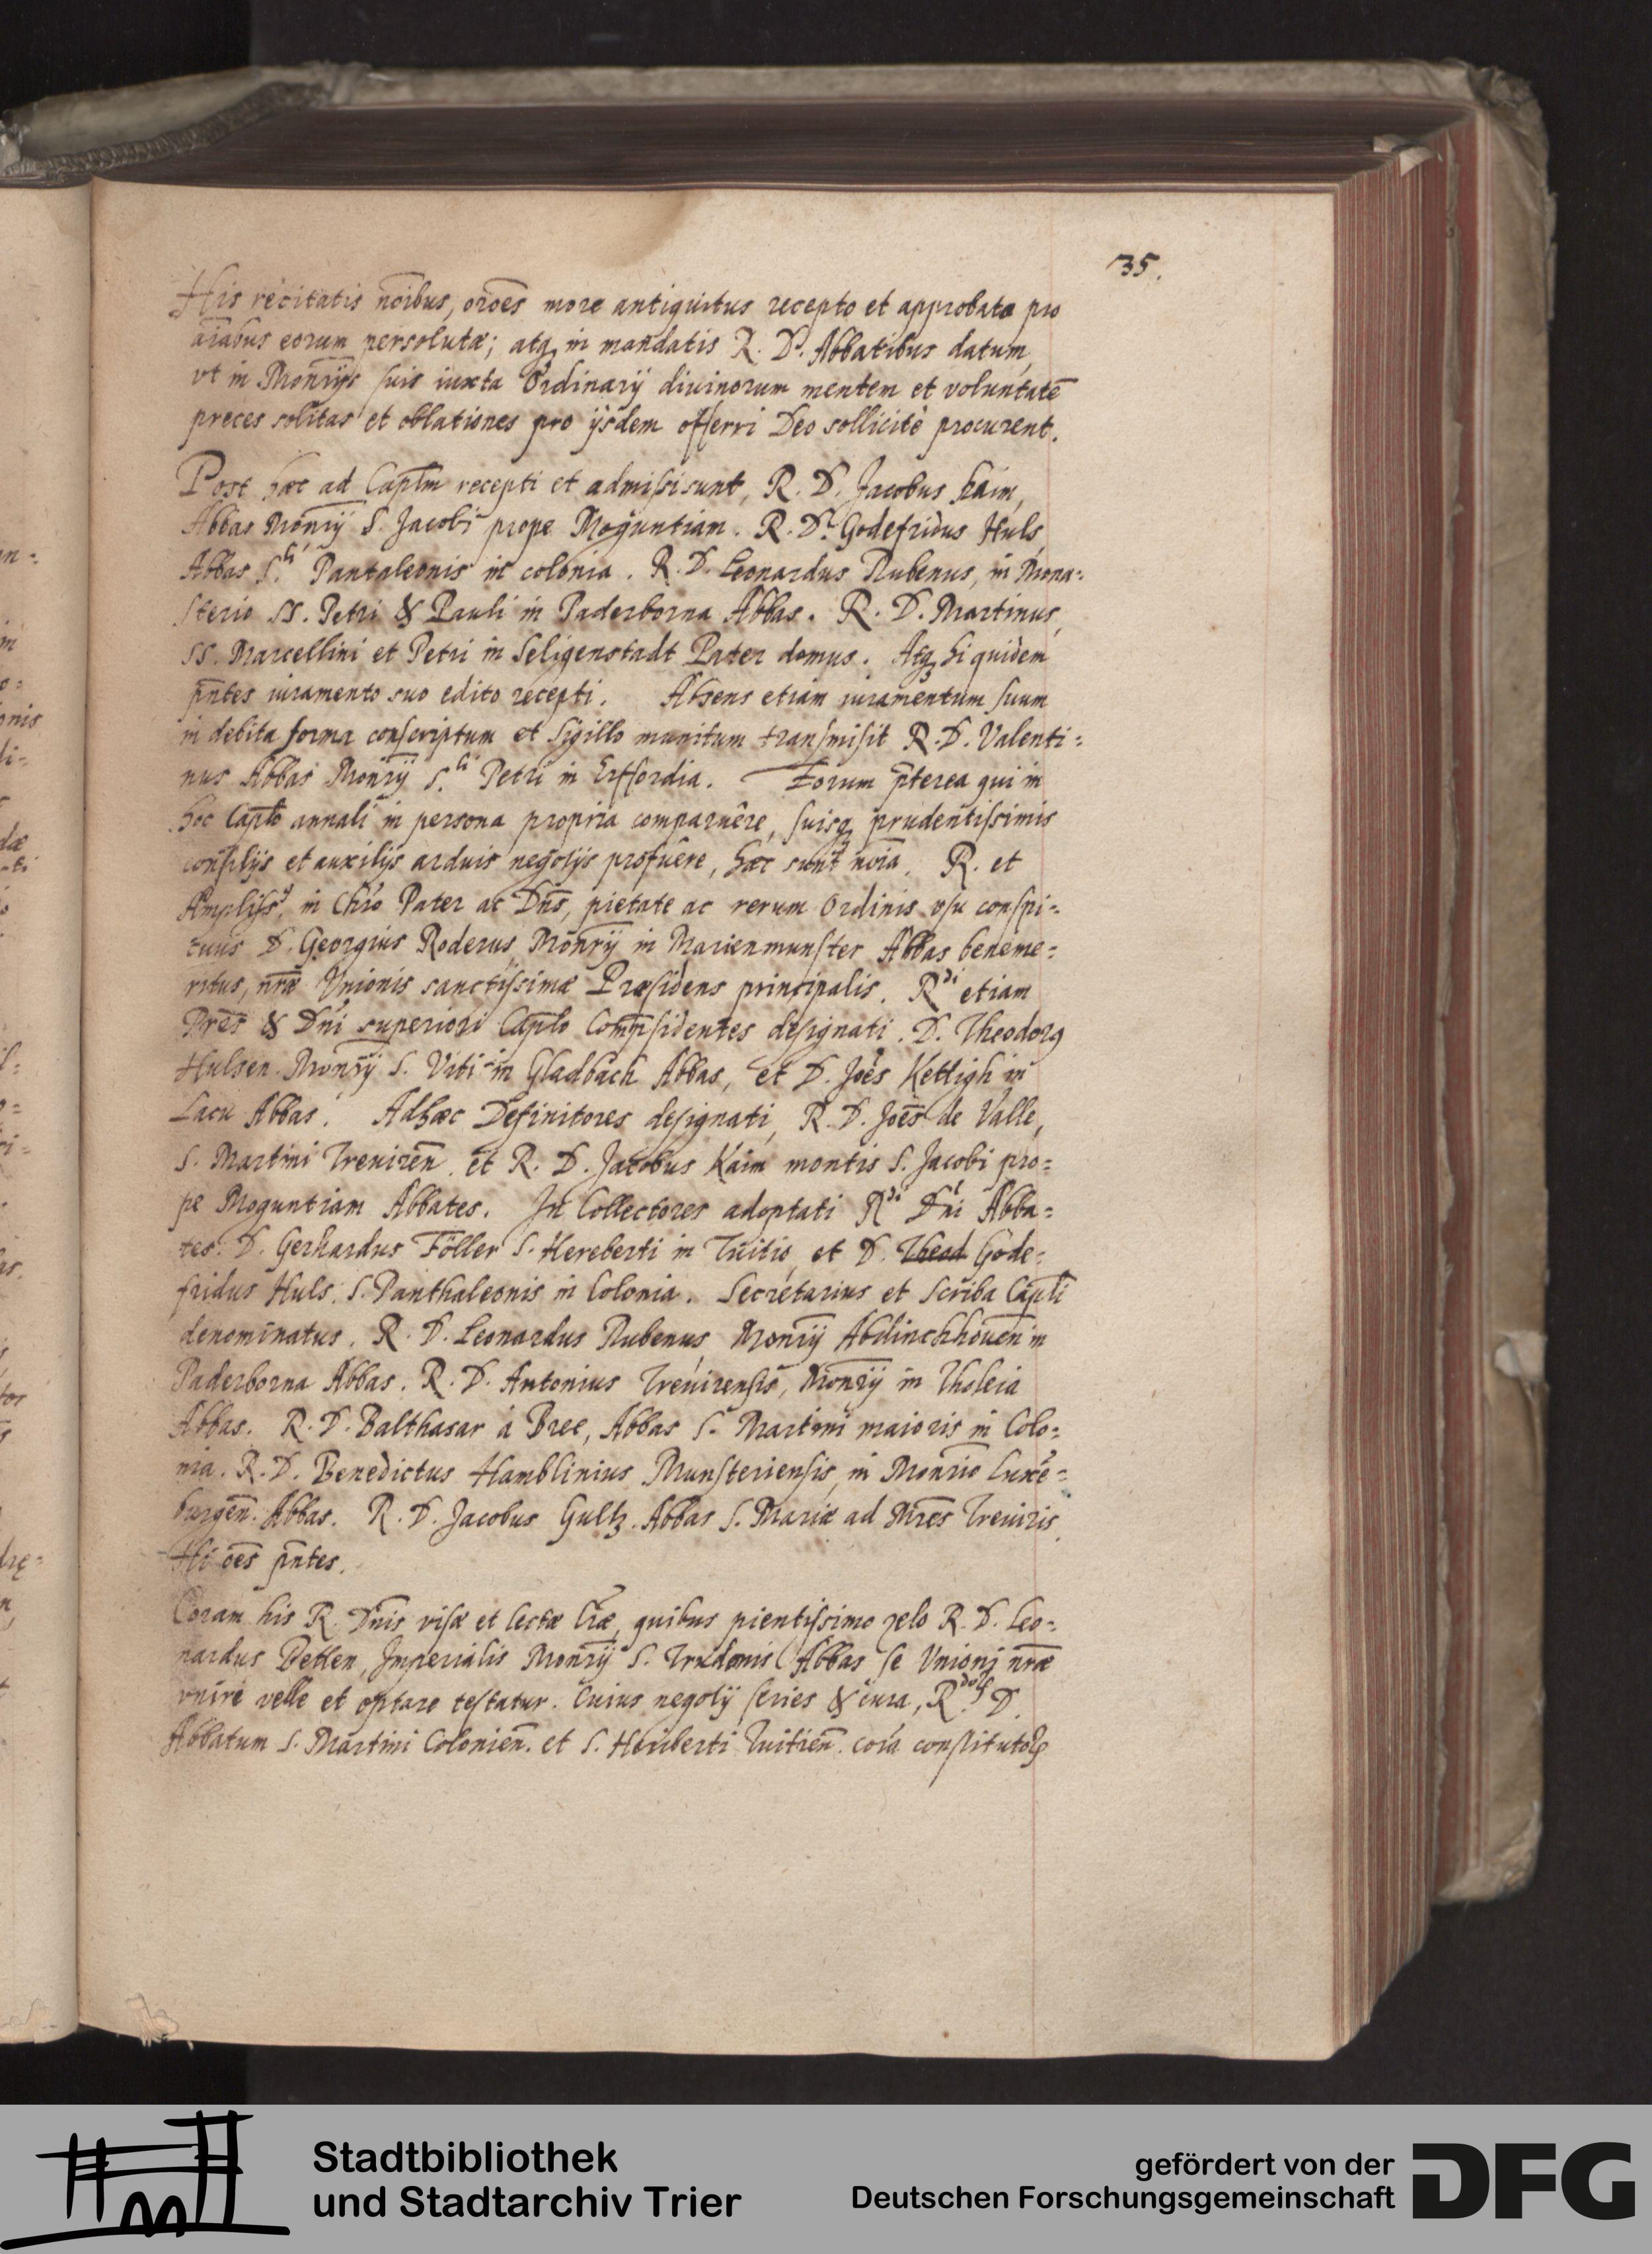 35.
His recitatis nōibus, orōes more antiquitus recepto et approbato pro
aīabus eorum persolutæ; atq₃ in mandatis R. D. Abbatibus datum,
vt in Monrijs suis iuxta Ordinarij diuinorum mentem et voluntatē
preces solitas et oblationes pro ijsdem offerri Deo sollicitè procurent.
Post hæc ad Caplm recepti et admissi sunt, R. D. Jacobus Kaim,
Abbas Monrij S. Jacobi prope Moguntiam. R. D. Godefridus Huls,
Abbas S.ti Pantaleonis in colonia. R. D. Leonardus Rubenus, in Mona=
sterio SS. Petri & Pauli in Paderborna Abbas. R. D. Martinus,
SS. Marcellini et Petri in Seligenstadt Pater domus. Atq₃ hi quidem
pn̄tes iuramento suo edito recepti. Absens etiam iuramentum suum
in debita forma conscriptum et sigillo munitum transmisit R. D. Valenti=
nus Abbas Monrij S.ti Petri in Erffordia. Eorum p̄terea qui in
hoc Caplo annali in persona propria comparuêre, suisq₃ prudentissimis
consilijs et auxilijs arduis negotijs profuêre, hæc sunt nōia. R. et
Ampliss. in Chr̄o Pater ac Dn̄s, pietate ac rerum Ordinis vsu conspi=
cuus D. Georgius Roderus, Monrij in Marienmunster Abbas beneme=
ritus, nr̄æ Vnionis sanctissimæ Præsidens principalis. R.di etiam
Pr̄es & Dn̄i superiori Caplo Comp̄sidentes designati. D. Theodorꝯ
Hulsen Monrij S. Viti in Gladbach Abbas, et D. Joēs Kettigh in
Lacu Abbas. Adhæc Definitores designati, R. D. Joēs de Valle,
S. Martini Treuiren̄. et R. D. Jacobus Kaim montis S. Jacobi pro=
pe Moguntiam Abbates. In Collectores adoptati R.di Dn̄i Abba=
tes. D. Gerhardus Föller S. Hereberti in Tuitio, et D. Theod Gode=
fridus Huls. S. Panthaleonis in Colonia. Secretarius et Scriba Capli
denominatus. R. D. Leonardus Rubenus Monrij Abdinchhouen in
Paderborna Abbas. R. D. Antonius Treuirensis, Monrij in Tholeia
Abbas. R. D. Balthasar à Bree, Abbas S. Martini maioris in Colo=
nia. R. D. Benedictus Hamblinius Munsteriensis, in Monrio Luxē=
burgen̄. Abbas. R. D. Jacobus Gultz. Abbas S. Mariæ ad Mr̄es Treuiris.
Hi oēs pn̄tes.
Coram his R. Dn̄is visæ et lectæ lr̄æ, quibus pientissimo zelo R. D. Leo=
nardus Betten, Imperialis Monrij S. Trudonis Abbas se Vnioni nr̄æ
vnire velle et optare testatur. Cuius negotij series & cura, R. D.
Abbatum S. Martini Colonien̄. et S. Heriberti Tuitien̄. corā constitutoꝝ
Stadtbibliothek
und Stadtarchiv Trier
gefördert von der
Deutschen Forschungsgemeinschaft
DFG